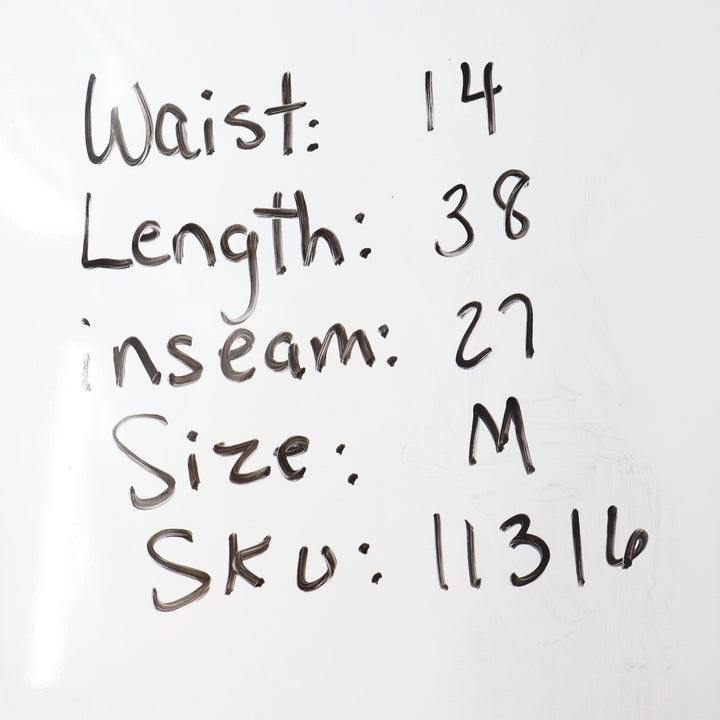 Waist: 14
Length: 38
inseam: 27
Size: M
SKU: 11316